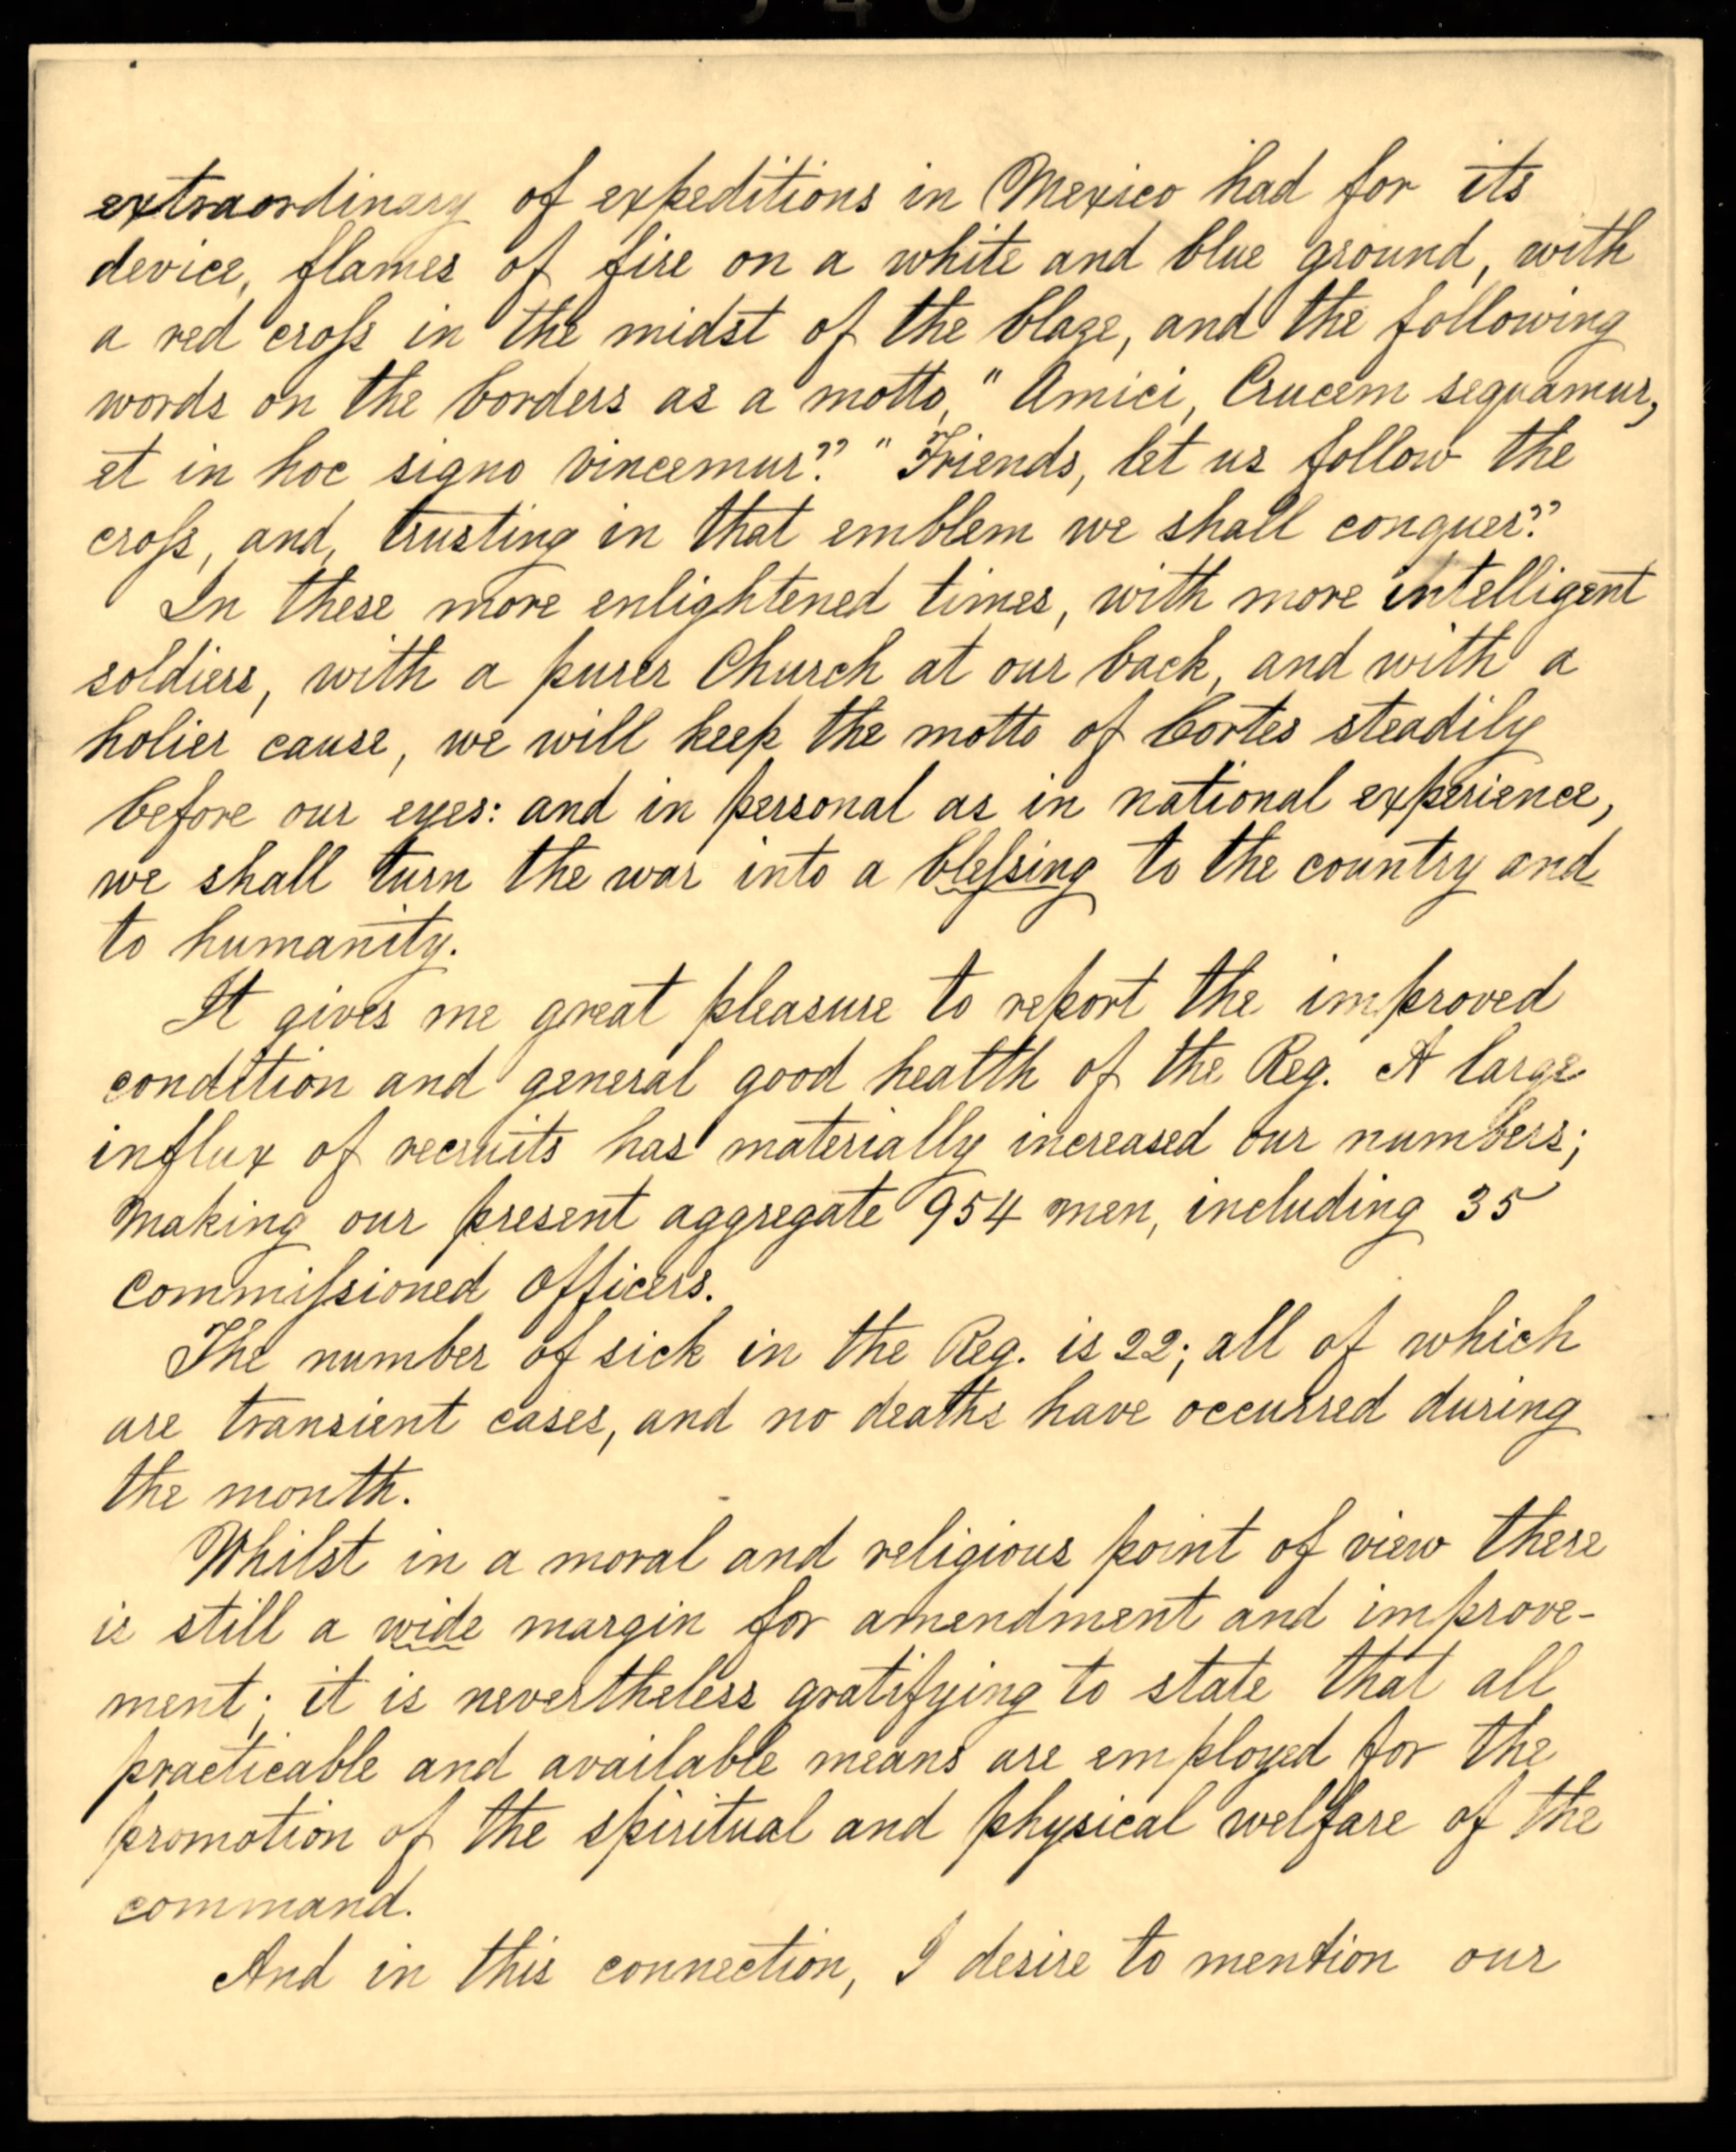 extraordinary of expeditions in Mexico had for its
device, flames of fire on a white and blue ground, with
a red croſs in the midst of the blaze, and the following
words on the borders as a motto, " Amici, Crucem sequamur,
et in hoc signo vincemur." "Friends, let us follow the
croſs, and, trusting in that emblem we shall conquer."
In these more enlightened times, with more intelligent
soldiers, with a purer Church at our back, and with a
holier cause, we will keep the motto of Cortes steadily
before our eyes: and in personal as in national experience,
we shall turn the war into a bleſsing to the country and
to humanity.
It gives me great pleasure to report the improved
condition and general good health of the Reg. A large
influx of recruits has materially increased our numbers;
making our present aggregate 954 men, including 35
Commiſsioned Officers.
The number of sick in the Reg. is 22; all of which
are transient cases, and no deaths have occurred during
the month.
Whilst in a moral and religious point of view there
is still a wide margin for amendment and improve-
ment; it is nevertheless gratifying to state that all
practicable and available means are employed for the
promotion of the spiritual and physical welfare of the
command.
And in this connection, I desire to mention our